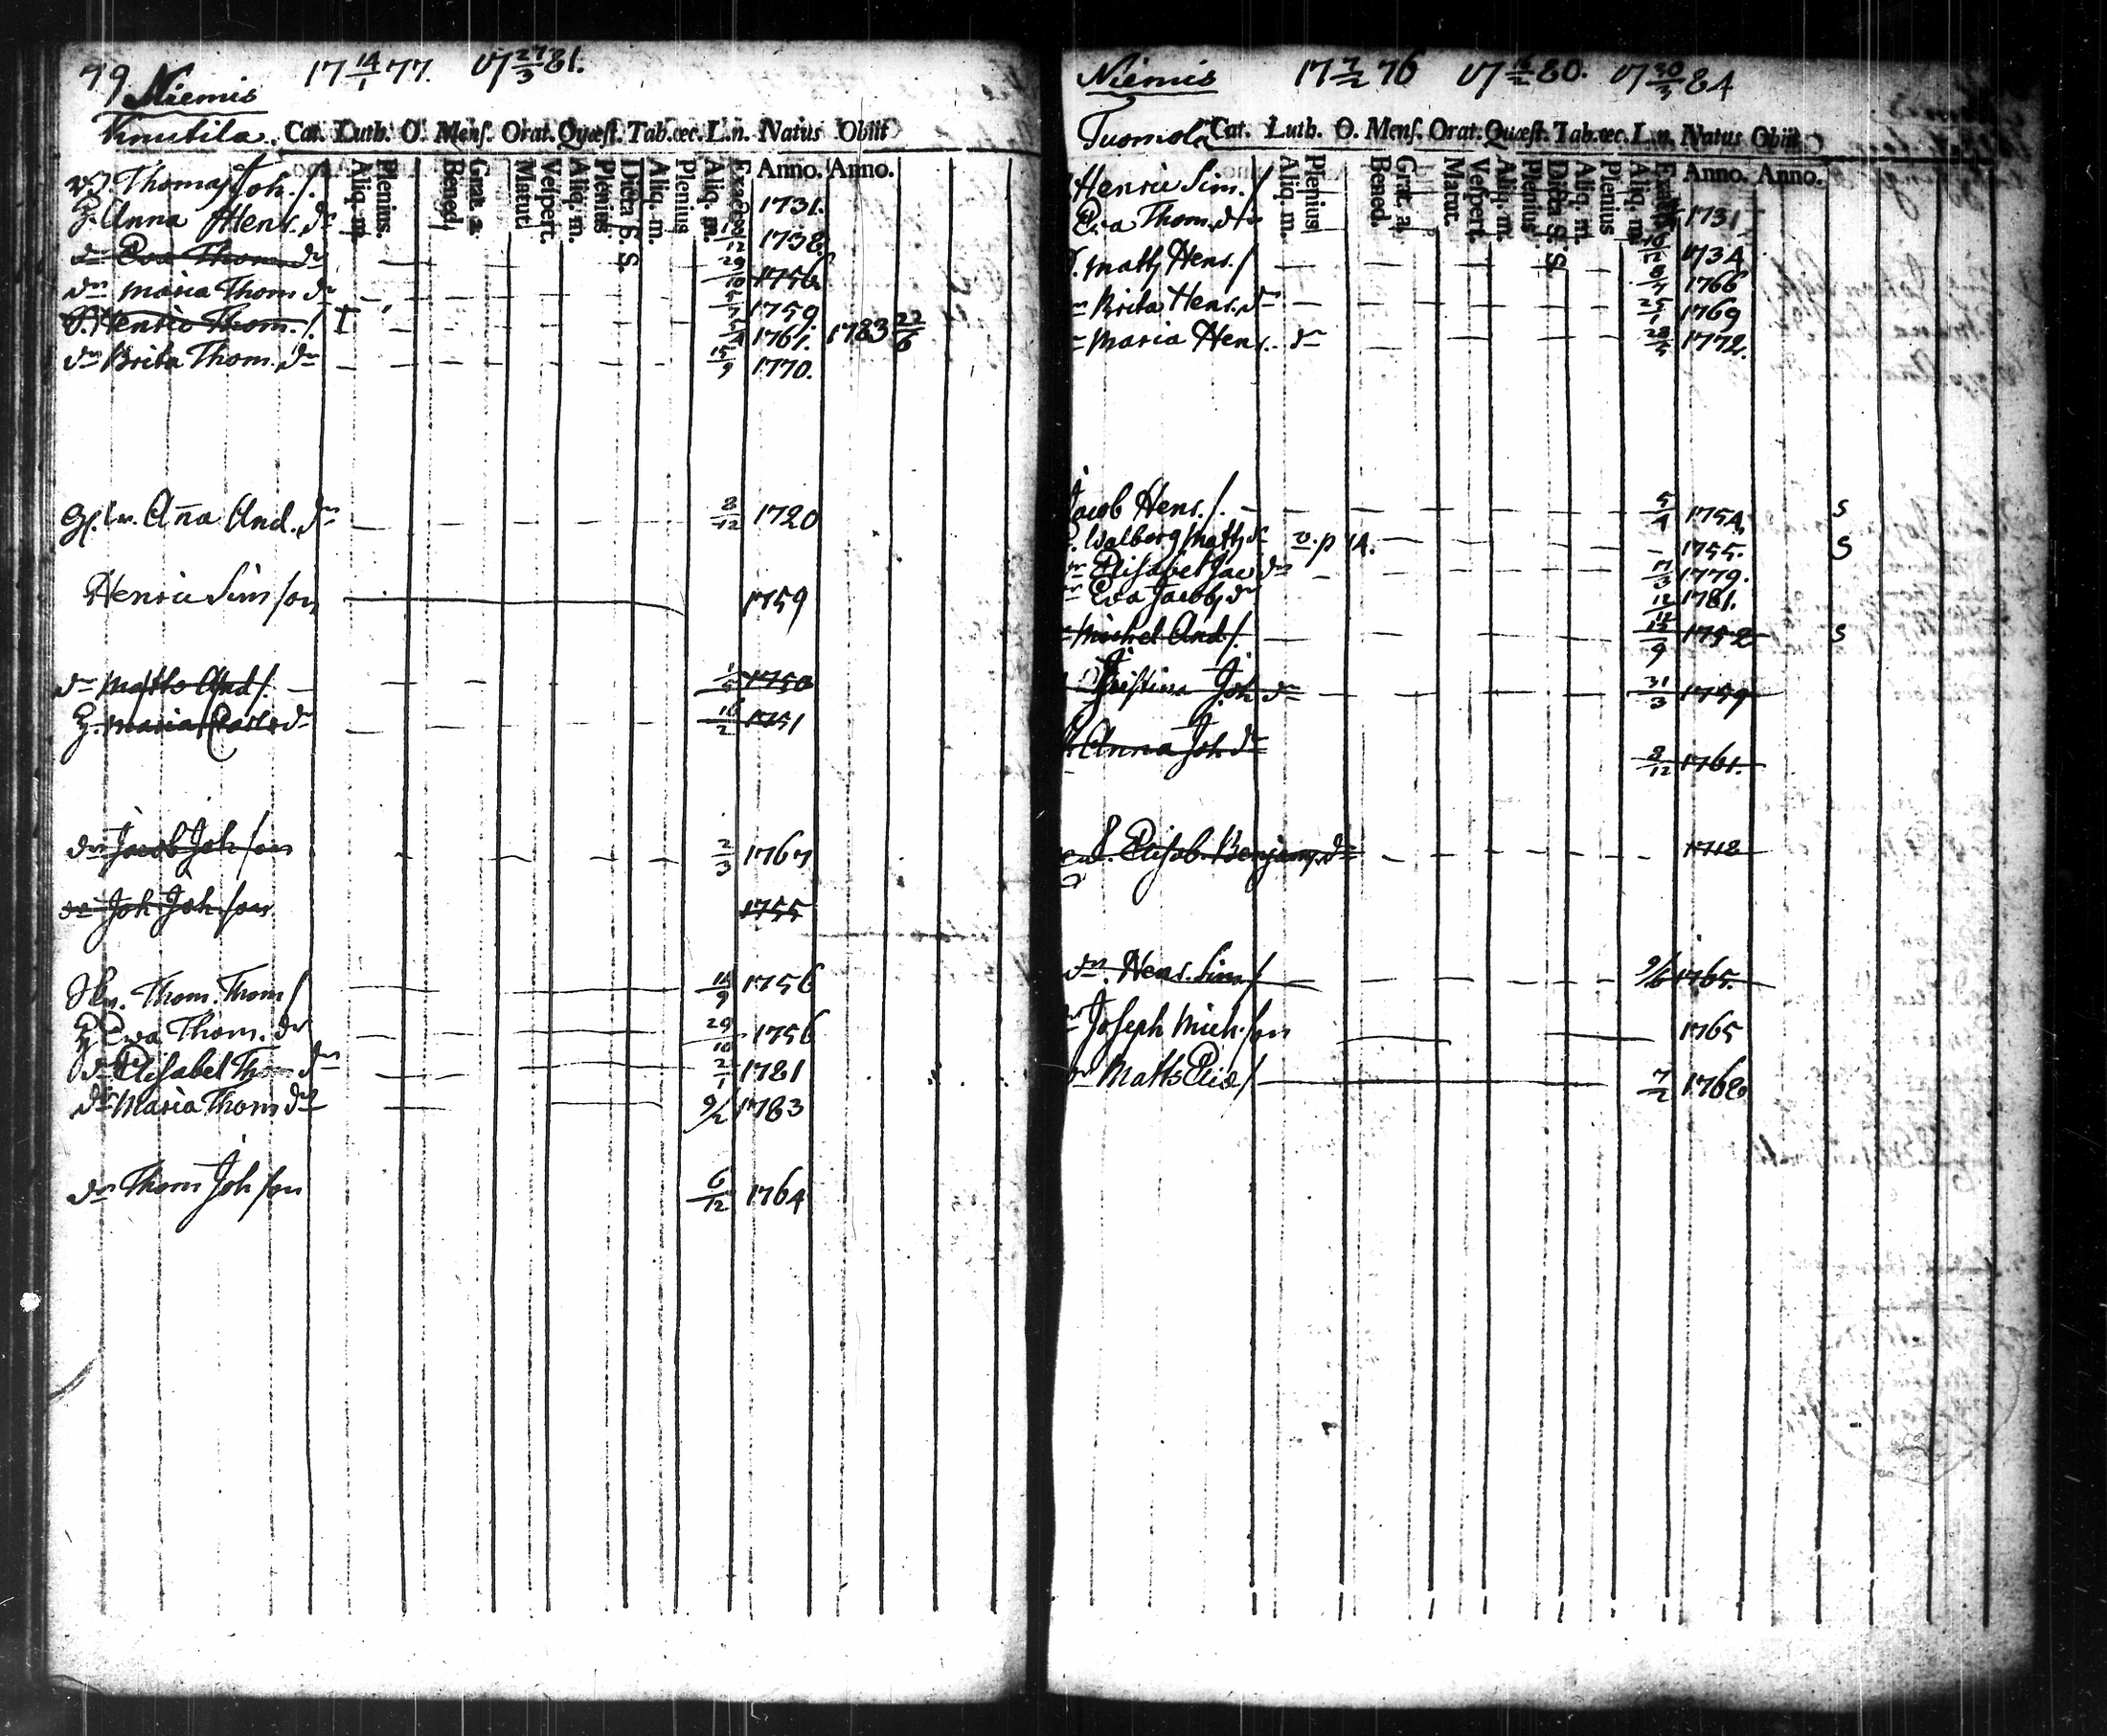 79 Niemis 17 14/1 77. 17 27/3 81.
Knutila. Cat. Luth. O. Menſ. Orat. Quæſt. Tab. œc. L. n. Natus Obiit
Aliq. m. Plenius. Bened. Grat. a. Matut. Veſpert. Aliq. m. Plenius Dicta S. S. Aliq. m. Plenius Aliq. m. Anno. Anno.
Thomas Joh. 1731.
H. Anna Henr. dr 1738.
dr Eva Thom. dr 29/10 1756
dr Maria Thom dr 1759.
Henric Thom. I 1761. 1783 22/6
dr Brita Thom. dr 15/9 1770.
Ana And. dr 8/12 1720
Henric Simſon 1759
Matts And 1750
H. Maria Carls dr 16/2 1751
dr Jacob Joh ſon 2/3 1767
dr Joh Joh ſon 1755
Thom. Thom 14/9 1756
H Eva Thom. dr 29/10 1756
dr Eliſabet Thom dr 2/1 1781
dr Maria Thom dr 9/2 1783
dr Thom Joh ſon 6/12 1764
Niemis 17 7/2 76 17 80. 17 84
Tuomola Cat. Luth. O. Menſ. Orat. Quæſt. Tab. œc. L. n. Natus Obiit
Aliq. m. Plenius Bened. Grat. a. Matut. Veſpert. Aliq. m. Plenius Dicta S. S. Aliq. m. Plenius Aliq. m. Anno. Anno.
Henric Sim. 1731
Eva Thom. dr 1734
Matts Henr. 1766
Brita Henr. dr 25/1 1769
Maria Henr. dr 1772.
Jacob Henr. 5/4 1754. S
Walborg Matts dr v. p 14. 1755. S
Eliſabet Jac dr 17/3 1779.
Eva Jacobs dr 12/12 1781.
Michel And 1752 S
Joh dr 31/3 1759
Anna Joh dr 8/12 1761.
Eliſab. Benjam. dr 1712
dr. Henr. Sim 9/6 1765.
Joſeph Mich. ſon 1765
Matts 7/2 1768